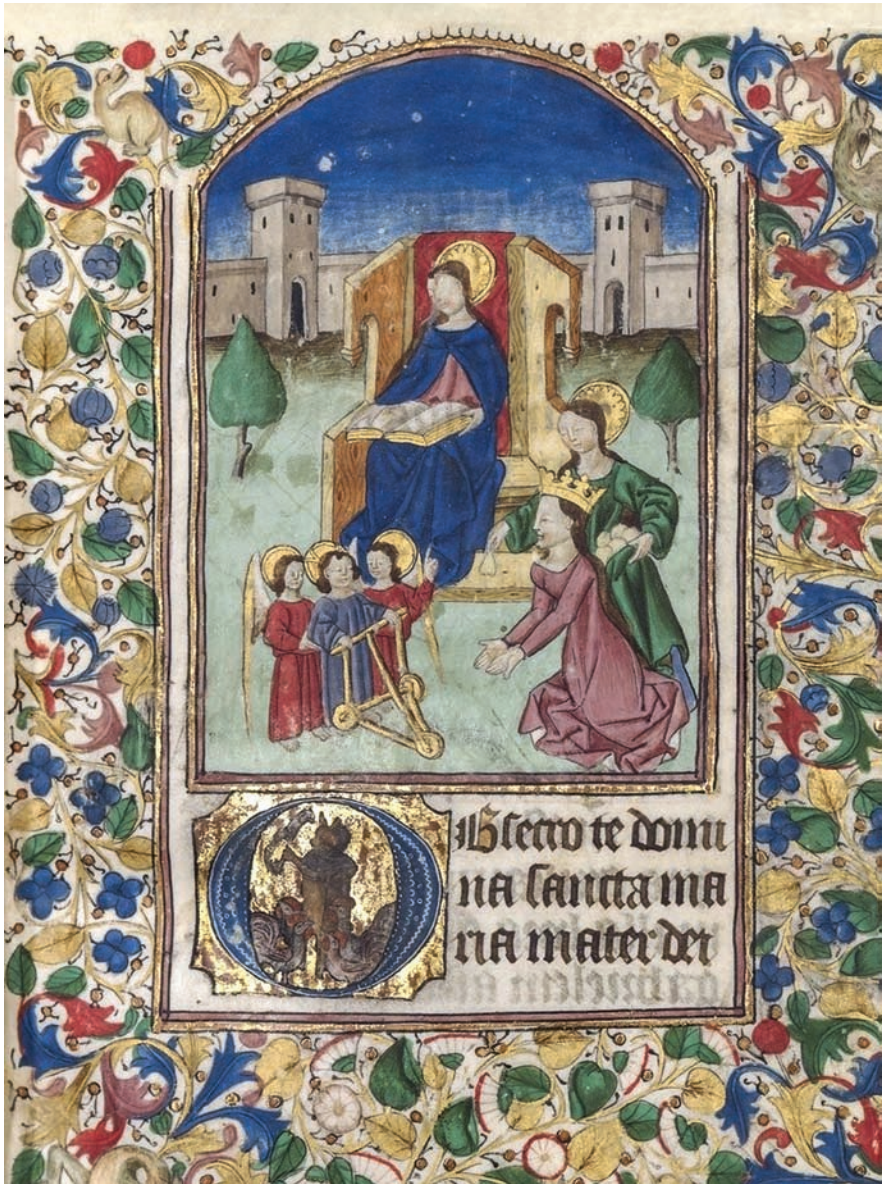 Obsecro te domi
na sancta ma
ria mater dei